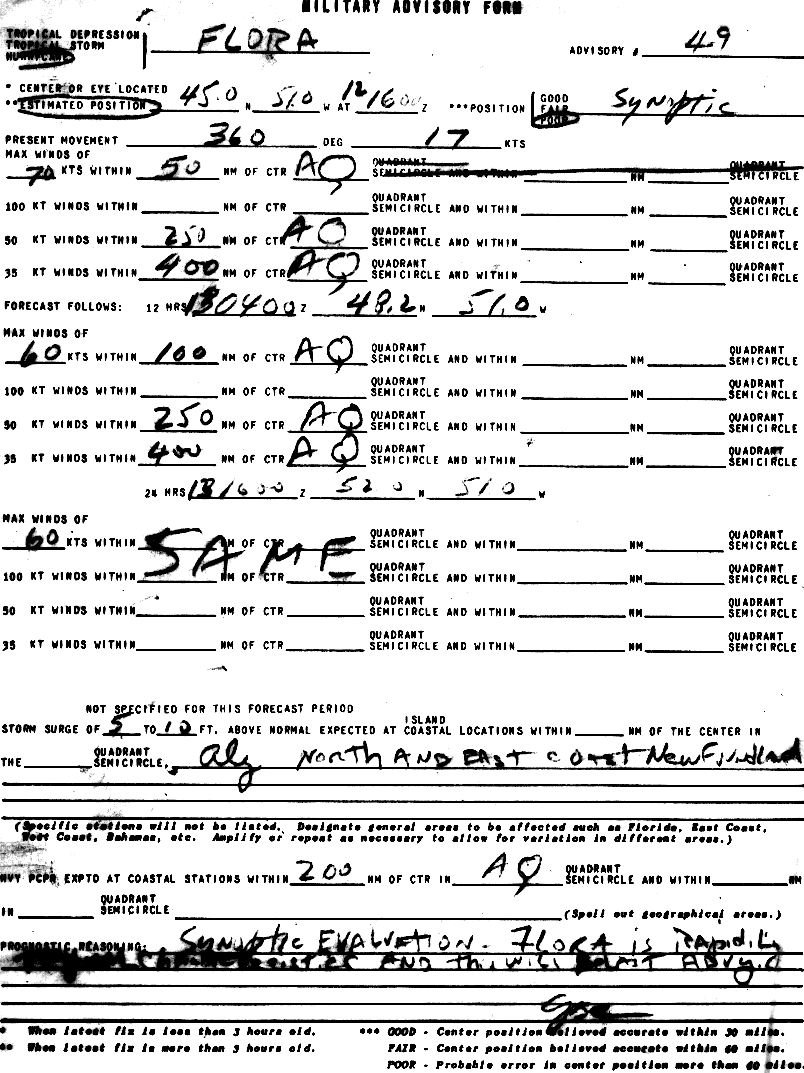 MILITARY ADVISORY FORM
TROPICAL DEPRESSION
TROPICAL STORM FLORA ADVISORY # 49
HURRICANE
* CENTER OR EYE LOCATED
**ESTIMATED POSITION 45.0 N 51.0 W AT 12/1600 Z ***POSITION GOOD FAIR POOR Synoptic
PRESENT MOVEMENT 360 DEG 17 KTS
MAX WINDS OF
70 KTS WITHIN 50 NM OF CTR AQ QUADRANT SEMICIRCLE AND WITHIN NM QUADRANT SEMICIRCLE
100 KT WINDS WITHIN NM OF CTR QUADRANT SEMICIRCLE AND WITHIN NM QUADRANT SEMICIRCLE
50 KT WINDS WITHIN 250 NM OF CTR AQ QUADRANT SEMICIRCLE AND WITHIN NM QUADRANT SEMICIRCLE
35 KT WINDS WITHIN 400 NM OF CTR AQ QUADRANT SEMICIRCLE AND WITHIN NM QUADRANT SEMICIRCLE
FORECAST FOLLOWS: 12 HRS 130400 Z 48.2 N 51.0 W
MAX WINDS OF
60 KTS WITHIN 100 NM OF CTR AQ QUADRANT SEMICIRCLE AND WITHIN NM QUADRANT SEMICIRCLE
100 KT WINDS WITHIN NM OF CTR QUADRANT SEMICIRCLE AND WITHIN NM QUADRANT SEMICIRCLE
50 KT WINDS WITHIN 250 NM OF CTR AQ QUADRANT SEMICIRCLE AND WITHIN NM QUADRANT SEMICIRCLE
35 KT WINDS WITHIN 400 NM OF CTR AQ QUADRANT SEMICIRCLE AND WITHIN NM QUADRANT SEMICIRCLE
24 HRS 131600 Z 52 0 N 51 0 W
MAX WINDS OF
60 KTS WITHIN SAME NM OF CTR QUADRANT SEMICIRCLE AND WITHIN NM QUADRANT SEMICIRCLE
100 KT WINDS WITHIN NM OF CTR QUADRANT SEMICIRCLE AND WITHIN NM QUADRANT SEMICIRCLE
50 KT WINDS WITHIN NM OF CTR QUADRANT SEMICIRCLE AND WITHIN NM QUADRANT SEMICIRCLE
35 KT WINDS WITHIN NM OF CTR QUADRANT SEMICIRCLE AND WITHIN NM QUADRANT SEMICIRCLE
NOT SPECIFIED FOR THIS FORECAST PERIOD
STORM SURGE OF 5 TO 10 FT. ABOVE NORMAL EXPECTED AT ISLAND COASTAL LOCATIONS WITHIN NM OF THE CENTER IN
THE QUADRANT SEMICIRCLE, alg North AND EAST coast Newfoundland
(Specific stations will not be listed. Designate general areas to be affected such as Florida, East Coast,
West Coast, Bahamas, etc. Amplify or repeat as necessary to allow for variation in different areas.)
HVY PCPN EXPTD AT COASTAL STATIONS WITHIN 200 NM OF CTR IN AQ QUADRANT SEMICIRCLE AND WITHIN NM
IN QUADRANT SEMICIRCLE (Spell out geographical areas.)
PROGNOSTIC REASONING: Synoptic EVALUATION. FLORA is Rapidly
AND this will LAST ADvy.
* When latest fix is less than 3 hours old. *** GOOD - Center position believed accurate within 30 miles.
** When latest fix is more than 3 hours old. FAIR - Center position believed accurate within 60 miles.
POOR - Probable error in center position more than 60 miles.